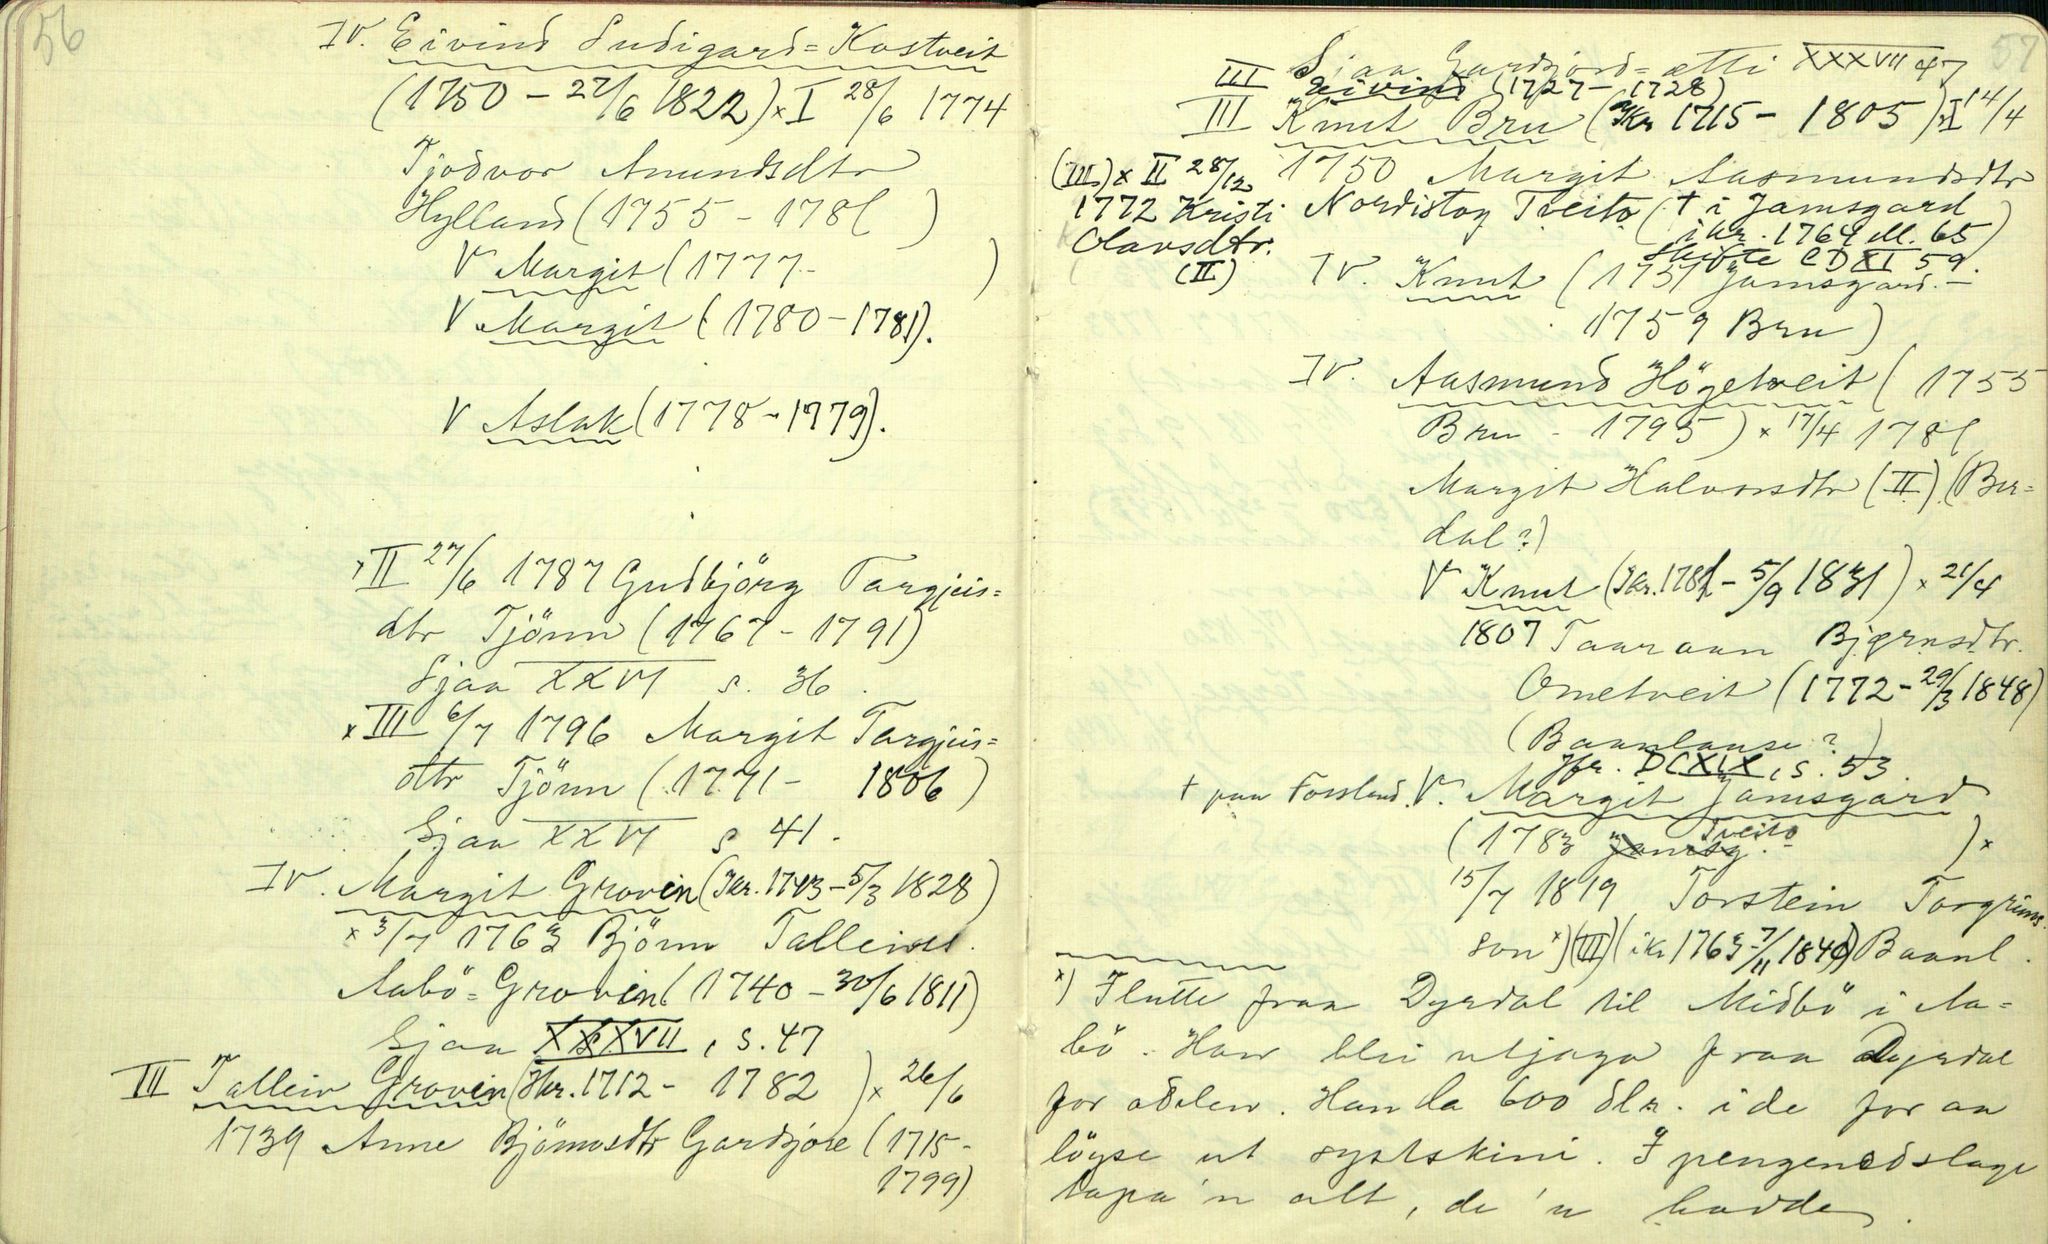 56
IV. Eivind Sudigard=Kostveit
(1750 - 27/6 1822) x I 28/6 1774
Tjodvor Amundsdtr
Hylland (1755 - 178( )
V Margit (1777- )
V Margit (1780 - 1781).
V Aslak (1778 - 1779).
x II 27/6 1787 Gudbjörg Targjeis=
dtr Tjönn (1767 - 1791)
Sjaa XXVI s. 36.
x III 6/7 1796 Margit Targjeis=
dtr Tjönn (1771 - 1806)
Sjaa XXVI s 41.
IV. Margit Groven (Ikr. 1743 - 5/3 1828)
x 3/7 1763 Björn Talleivs.
Aabö=Groven (1740 - 30/6 1811)
Sjaa XXXVII, s. 47
III Talleiv Groven (Ikr. 1712 - 1782 ) x 26/6
1739 Anne Björnsdtr Gardsjore (1715 -
1799)
57
Sjaa Gardsjord=ætti XXXVII 47
III Eivind (1727 - 1728)
III Knut Bru (Ikr 1715 - 1805) x I 14/4
1750 Margit Aasmundsdtr
Nordistog Tveito († i Jamsgard
ikr. 1764 M. 65)
Skifte CDXI 59.
(III) x II 28/12
1772 Kristi
Olavsdtr.
(II)
IV. Knut (1751 Jamsgard. -
1759 Bru)
IV. Aasmund Högetveit (1755
Bru - 1795) x 17/4 178(
Margit Halvorsdtr (II) (Ber=
dal?)
V Knut (Ikr. 1781 - 5/9 1831) x 21/4
1807 Taaraan Bjørnsdtr.
Ometveit (1772 - 29/3 1848)
(Baanlause?)
Jfr. DCXIX, s. 53.
† paa Forsland. V. Margit Jamsgard
(1783 Jamsg. Tveito - ) x
15/7 1819 Torstein Torgrims.
son x) (III) (ikr 1763 - 7/11 1840) Baanl.
x) Flutte fraa Dyrdal til Midbö i Aa=
bö. Han blei utjaga fraa Dyrdal
for odelen. Han la 600 dlr. i de for aa
löyse ut systskini. I pengenedslage
tapa 'n alt, de 'n hadde.